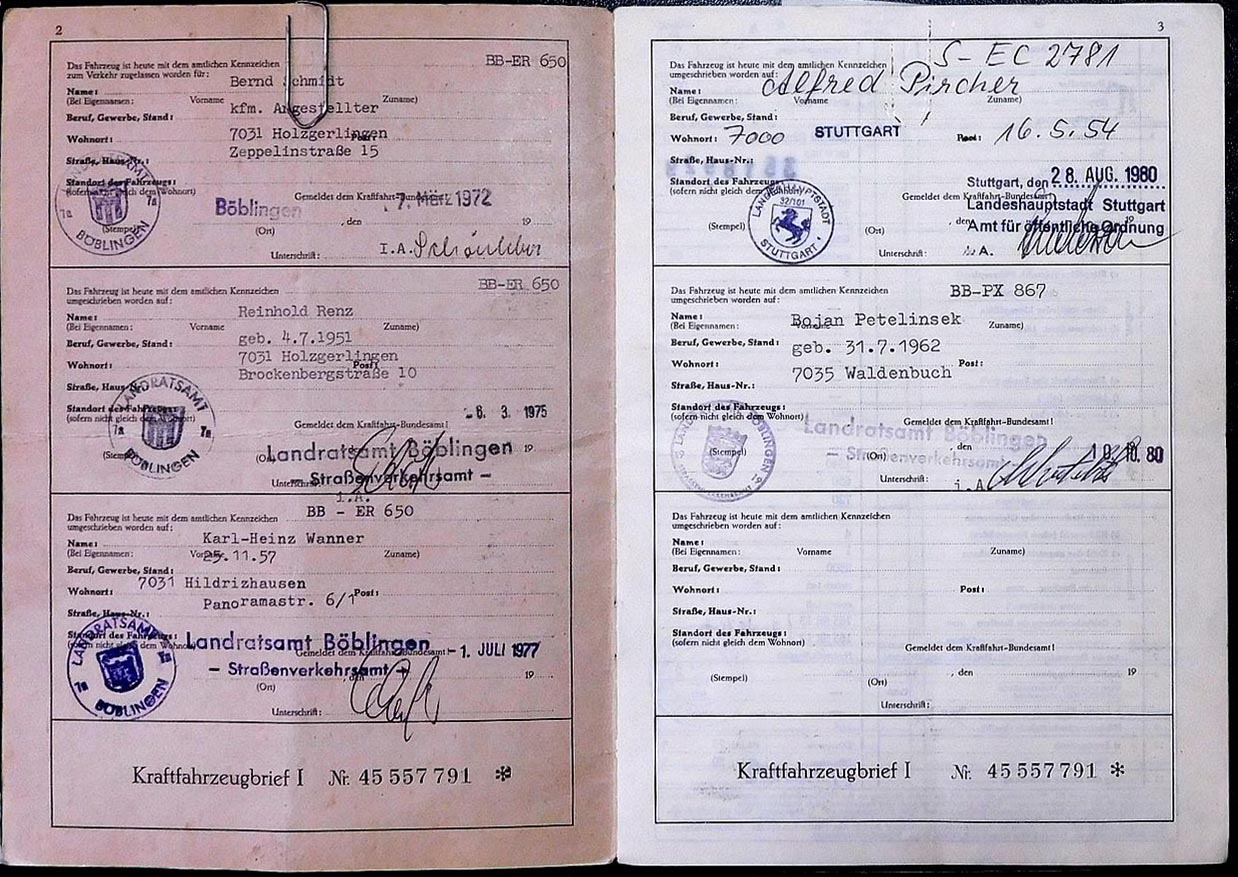 2
Das Fahrzeug ist heute mit dem amtlichen Kennzeichen BB-ER 650
zum Verkehr zugelassen worden für:
Name: Bernd Schmidt
(Bei Eigennamen: Vorname Zuname)
Beruf, Gewerbe, Stand: kfm. Angestellter
Wohnort: 7031 Holzgerlingen Post:
Straße, Haus-Nr.: Zeppelinstraße 15
Standort des Fahrzeugs:
(sofern nicht gleich dem Wohnort)
LANDRATSAMT BÖBLINGEN 7a 7a
Gemeldet dem Kraftfahrt-Bundesamt!
Böblingen, den 7. März 1972 19
(Stempel) (Ort)
Unterschrift: I.A.
Das Fahrzeug ist heute mit dem amtlichen Kennzeichen BB-ER 650
umgeschrieben worden auf:
Name: Reinhold Renz
(Bei Eigennamen: Vorname Zuname)
Beruf, Gewerbe, Stand: geb. 4.7.1951
Wohnort: 7031 Holzgerlingen Post:
Straße, Haus-Nr.: Brockenbergstraße 10
Standort des Fahrzeugs:
(sofern nicht gleich dem Wohnort)
LANDRATSAMT BÖBLINGEN 7a 7a
-6. 3. 1975
Gemeldet dem Kraftfahrt-Bundesamt!
Landratsamt Böblingen 19
(Stempel) (Ort)
Unterschrift: - Straßenverkehrsamt -
i.A.
Das Fahrzeug ist heute mit dem amtlichen Kennzeichen BB - ER 650
umgeschrieben worden auf:
Name: Karl-Heinz Wanner
(Bei Eigennamen: Vorname Zuname)
25.11.57
Beruf, Gewerbe, Stand:
Wohnort: 7031 Hildrizhausen Post:
Straße, Haus-Nr.: Panoramastr. 6/1
Standort des Fahrzeugs:
(sofern nicht gleich dem Wohnort)
LANDRATSAMT BÖBLINGEN
Landratsamt Böblingen
Gemeldet dem Kraftfahrt-Bundesamt! -1. JULI 1977
- Straßenverkehrsamt - 19
(Ort)
Unterschrift:
Kraftfahrzeugbrief I Nr. 45 557 791 *
3
Das Fahrzeug ist heute mit dem amtlichen Kennzeichen S-EC 2781
umgeschrieben worden auf:
Name: Alfred Pircher
(Bei Eigennamen: Vorname Zuname)
Beruf, Gewerbe, Stand:
Wohnort: 7000 STUTTGART Post: 16.5.54
Straße, Haus-Nr.:
Standort des Fahrzeugs: Stuttgart, den 28. AUG. 1980
(sofern nicht gleich dem Wohnort)
LANDESHAUPTSTADT STUTTGART 32/101
Gemeldet dem Kraftfahrt-Bundesamt!
Landeshauptstadt Stuttgart
, den 19
Amt für öffentliche Ordnung
(Stempel) (Ort)
Unterschrift: i. A.
Das Fahrzeug ist heute mit dem amtlichen Kennzeichen BB-PX 867
umgeschrieben worden auf:
Name: Bojan Petelinsek
(Bei Eigennamen: Vorname Zuname)
Beruf, Gewerbe, Stand: geb. 31.7.1962
Wohnort: 7035 Waldenbuch Post:
Straße, Haus-Nr.:
Standort des Fahrzeugs:
(sofern nicht gleich dem Wohnort)
Gemeldet dem Kraftfahrt-Bundesamt!
Landratsamt Böblingen
, den 10. 80
(Stempel) (Ort) - Straßenverkehrsamt -
Unterschrift: i.A.
Das Fahrzeug ist heute mit dem amtlichen Kennzeichen
umgeschrieben worden auf:
Name:
(Bei Eigennamen: Vorname Zuname)
Beruf, Gewerbe, Stand:
Wohnort: Post:
Straße, Haus-Nr.:
Standort des Fahrzeugs:
(sofern nicht gleich dem Wohnort)
Gemeldet dem Kraftfahrt-Bundesamt!
, den 19
(Stempel) (Ort)
Unterschrift:
Kraftfahrzeugbrief I Nr. 45 557 791 *